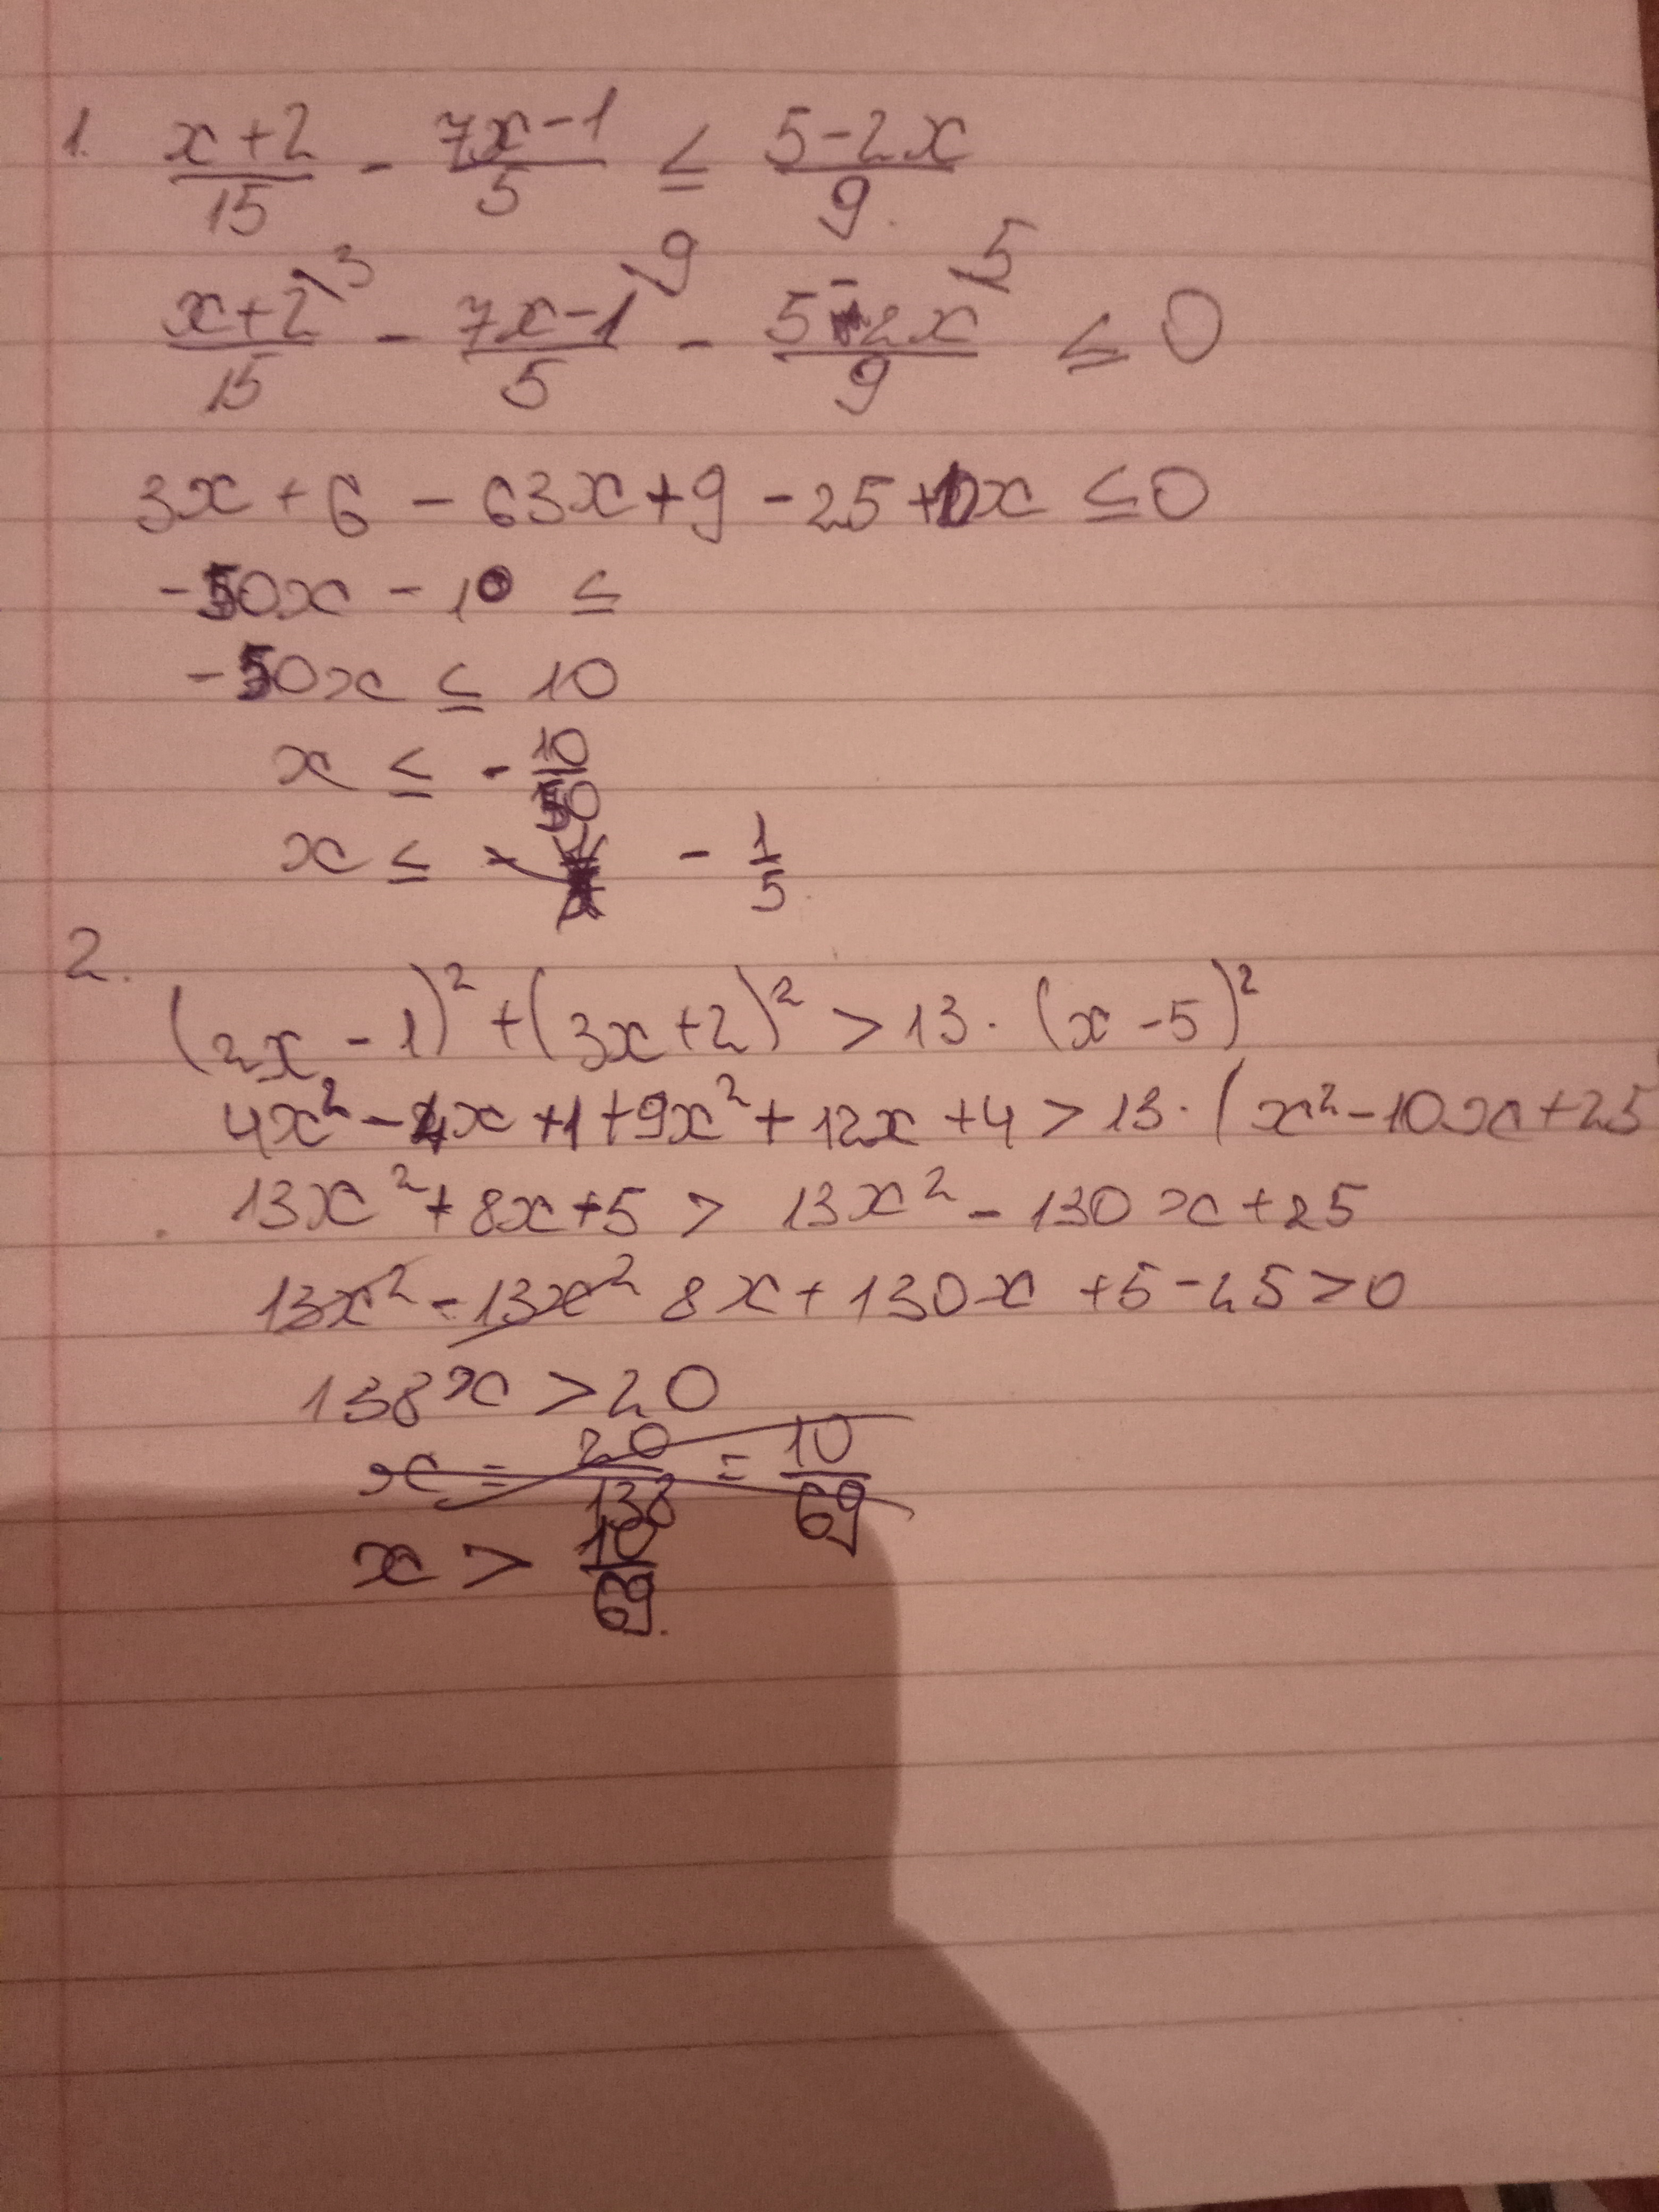 1. x+2/15 - 7x-1/5 ≤ 5-2x/9.
x+2/15 \3 - 7x-1/5 \9 - 5-2x/9 \5 ≤ 0
3x + 6 - 63x + 9 - 25 + 10x ≤ 0
-50x - 10 ≤
-50x ≤ 10
x ≤ - 10/50
x ≤ - - 1/5.
2.
(2x - 1)² + (3x + 2)² > 13 · (x - 5)²
4x² - 4x + 1 + 9x² + 12x + 4 > 13 · (x² - 10x + 25
13x² + 8x + 5 > 13x² - 130x + 25
13x² - 13x² 8x + 130x + 5 - 25 > 0
138x > 20
x = 20/138 = 10/69
x > 10/69.